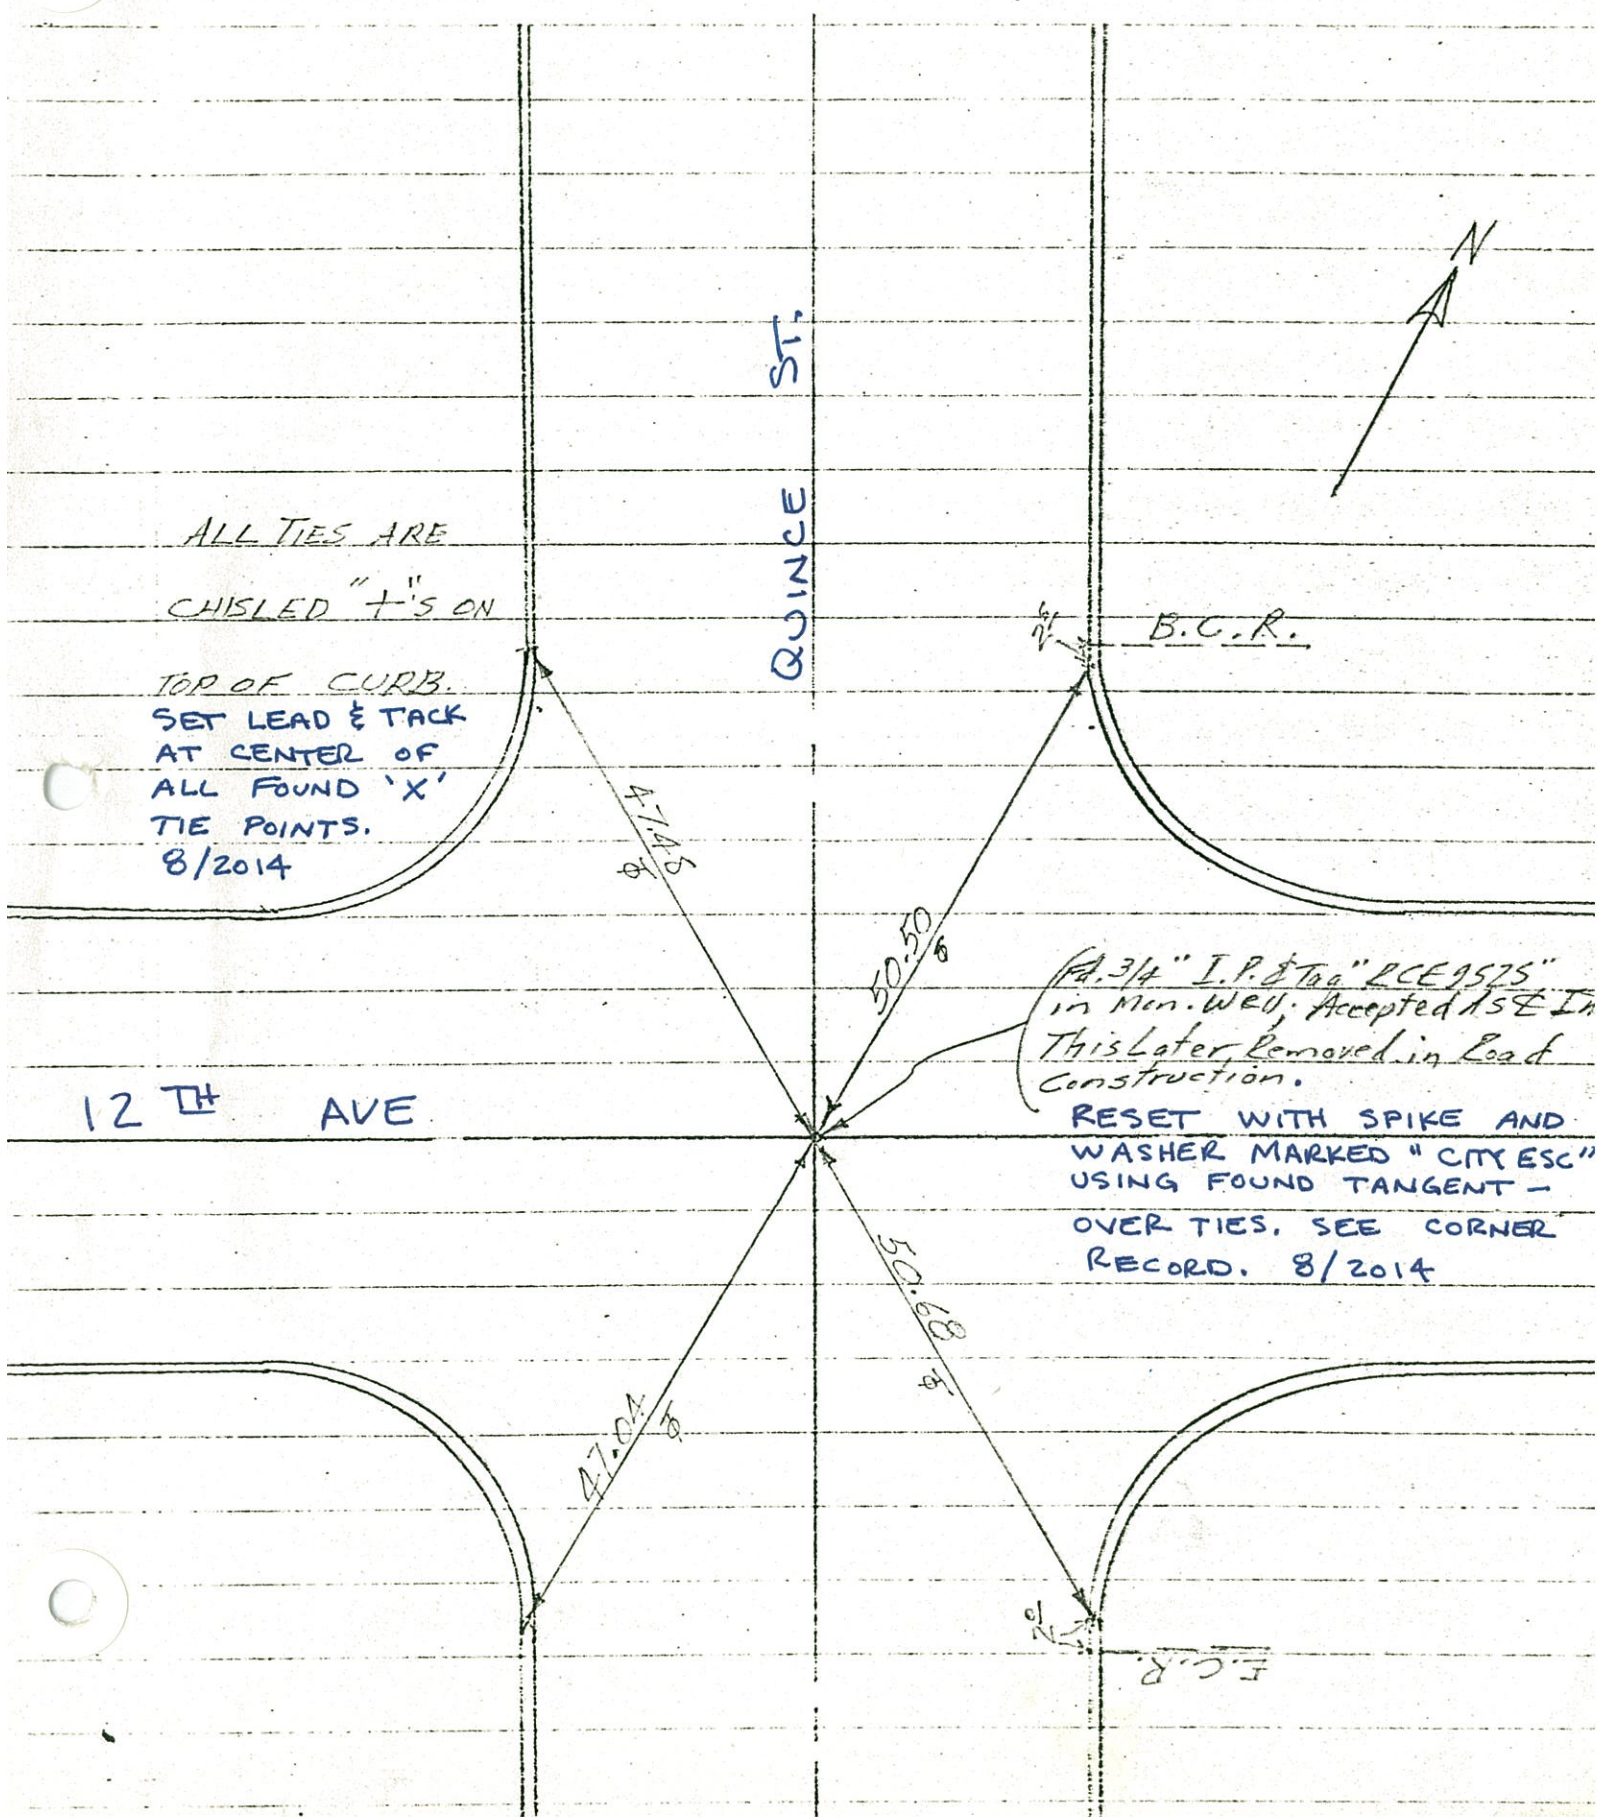 N
QUINCE ST.
ALL TIES ARE
CHISLED "+"S ON
TOP OF CURB.
SET LEAD & TACK
AT CENTER OF
ALL FOUND 'X'
TIE POINTS.
8/2014
B.C.R.
47.48
50.50
Fd. 3/4" I.P. & Tag "RCE 9525"
in Mon. Well; Accepted As ℄ In
This Later Removed in Road
Construction.
12 TH AVE
RESET WITH SPIKE AND
WASHER MARKED "CITY ESC"
USING FOUND TANGENT -
OVER TIES. SEE CORNER
RECORD. 8/2014
47.04
50.68
E.C.R.